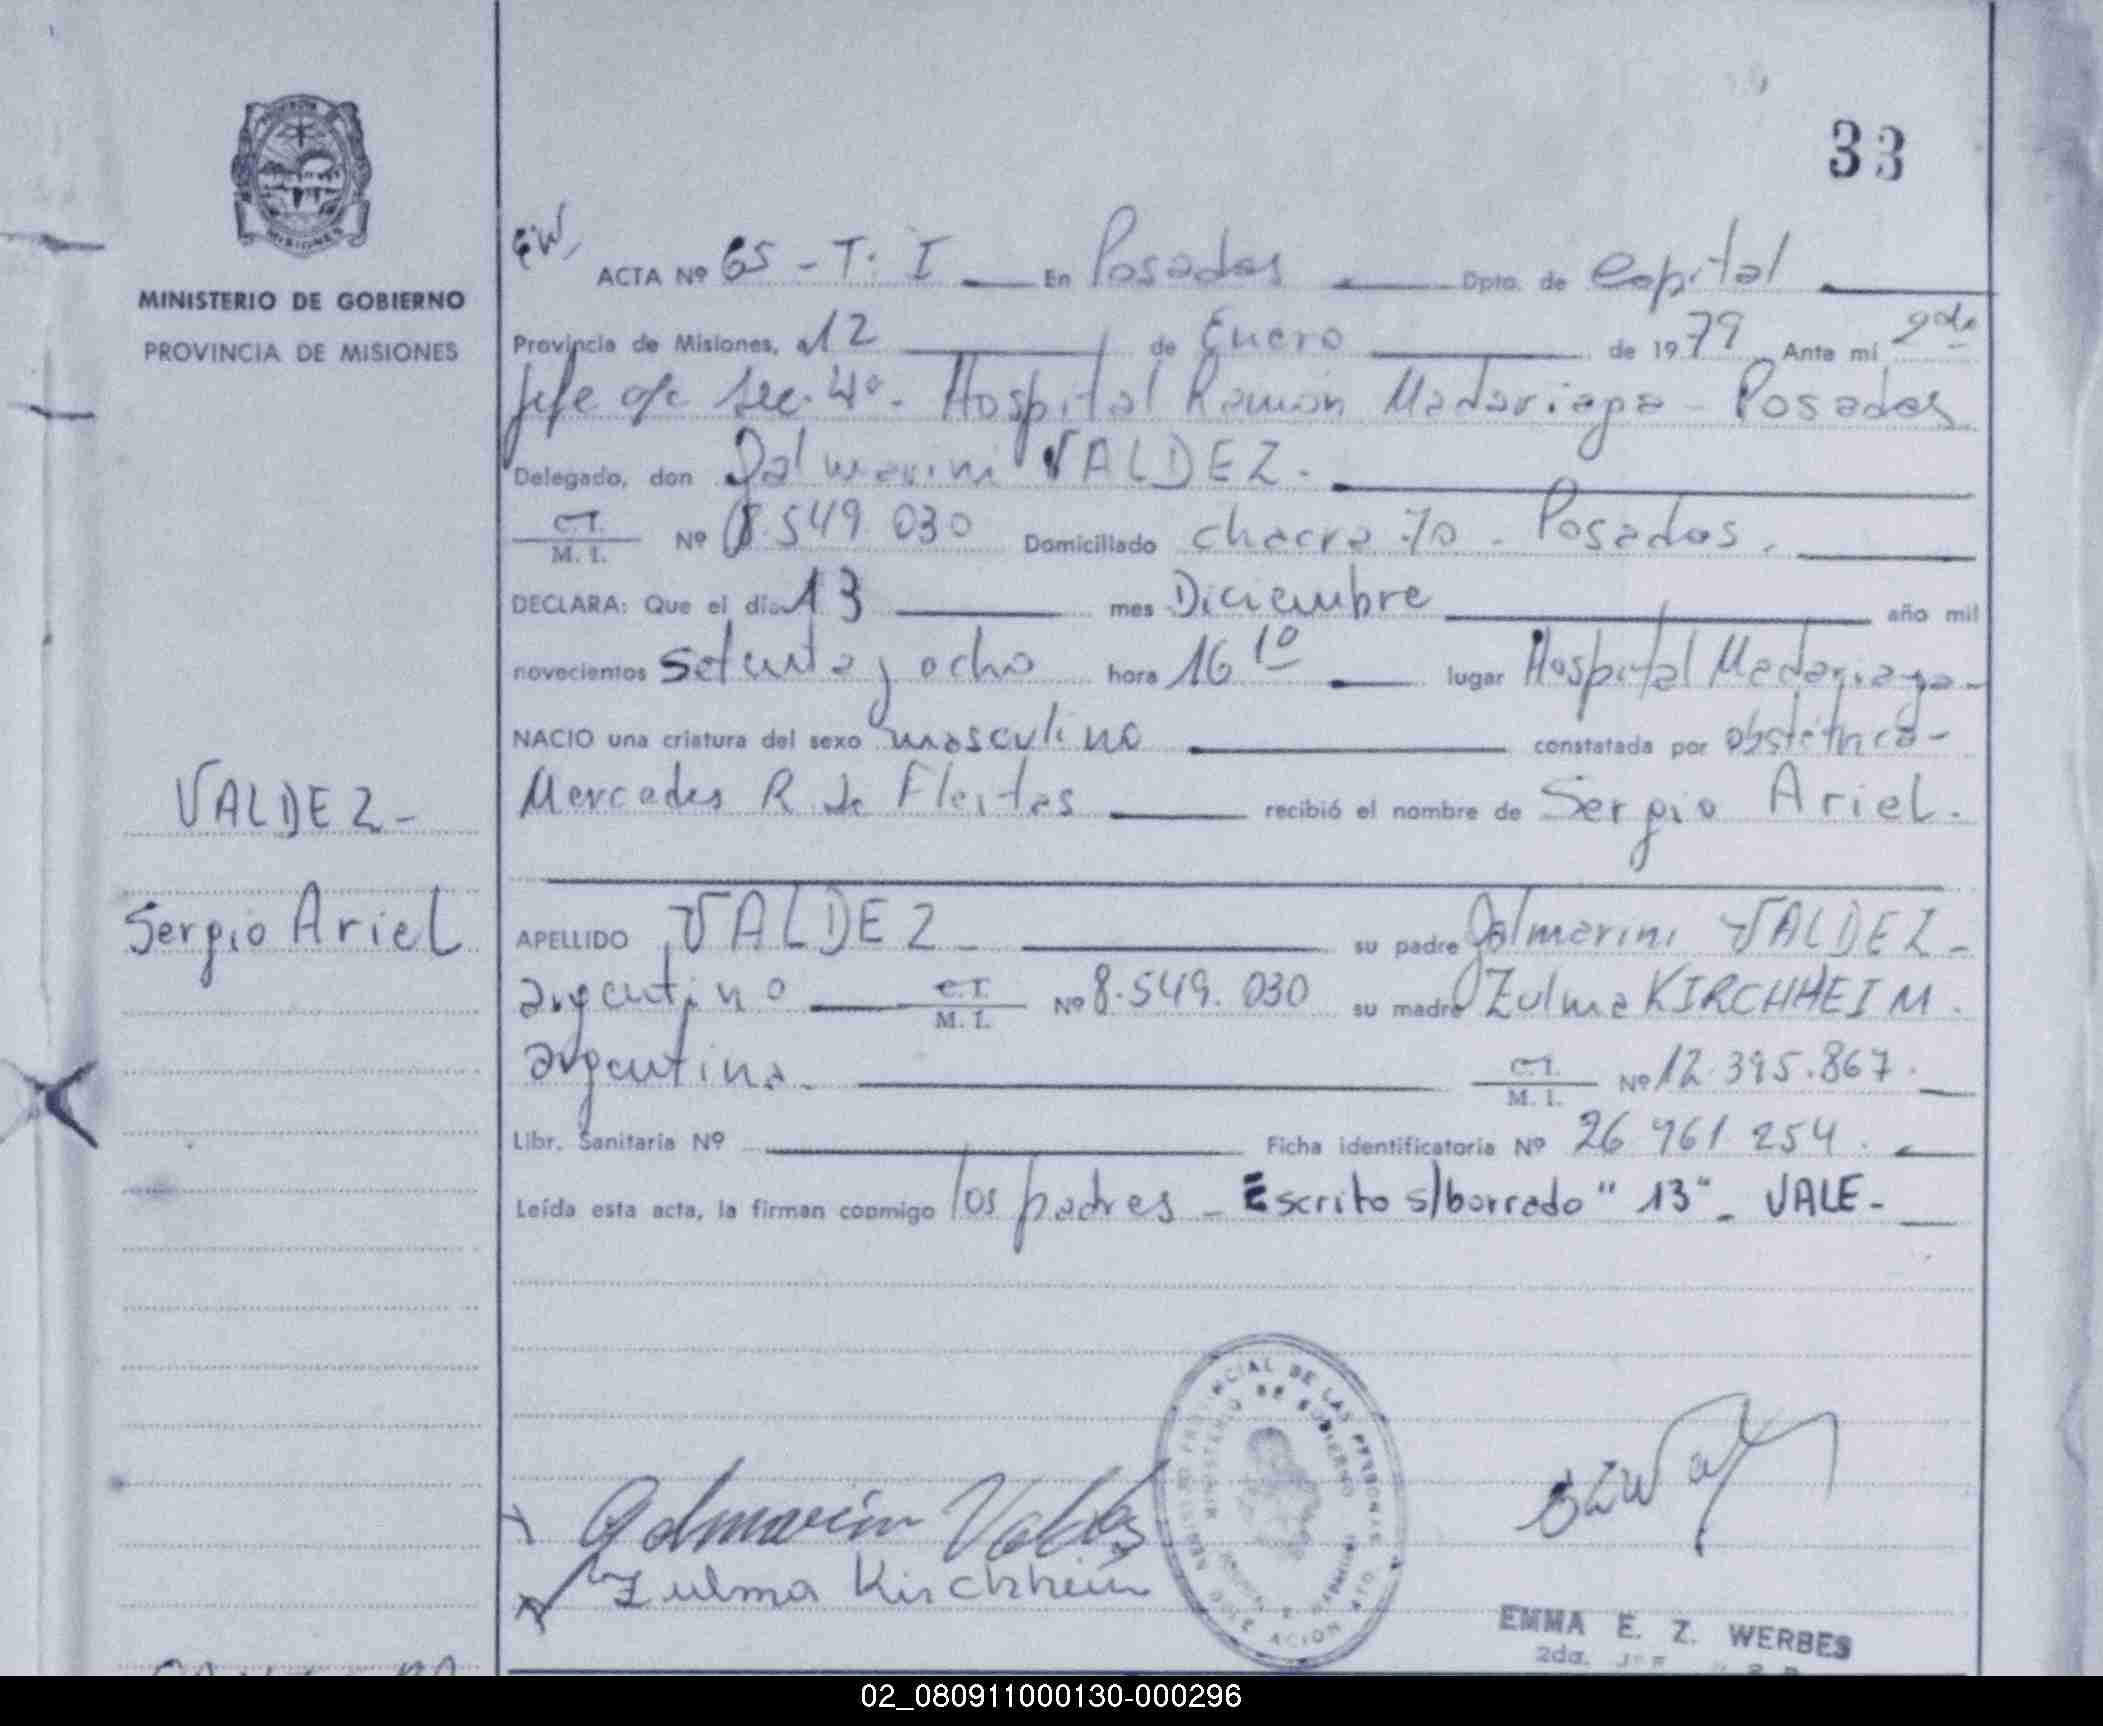 MISIONES
MINISTERIO DE GOBIERNO
PROVINCIA DE MISIONES
33
ACTA Nº 65 - T. I En Posadas Dpto. de Capital
Provincia de Misiones, a 12 de Enero de 1979 Ante mi 2da
Jefe ofc Sec. 4º - Hospital Ramón Madariaga - Posadas
Delegado, don Galmarini VALDEZ.
C.I.
M. I. Nº 8.549.030 Domiciliado chacra 70 - Posadas.
DECLARA: Que el día 13 mes Diciembre año mil
novecientos setenta y ocho hora 16 10 lugar Hospital Madariaga -
NACIO una criatura del sexo masculino constatada por obstétrica -
Mercedes R. de Fleitas recibió el nombre de Sergio Ariel.
VALDEZ -
Sergio Ariel
APELLIDO VALDEZ - su padre Galmarini VALDEZ -
argentino C.I. M. I. Nº 8.549.030 su madre Zulma KIRCHHEIM.
argentina. C.I. M. I. Nº 12.395.867.
Libr. Sanitaria Nº Ficha identificatoria Nº 26 961 254.
Leída esta acta, la firman conmigo los padres - Escrito s/borrado "13" - VALE -
Galmarini Valdez
Zulma Kirchheim
EMMA E. Z. WERBES
2da.
02_080911000130-000296